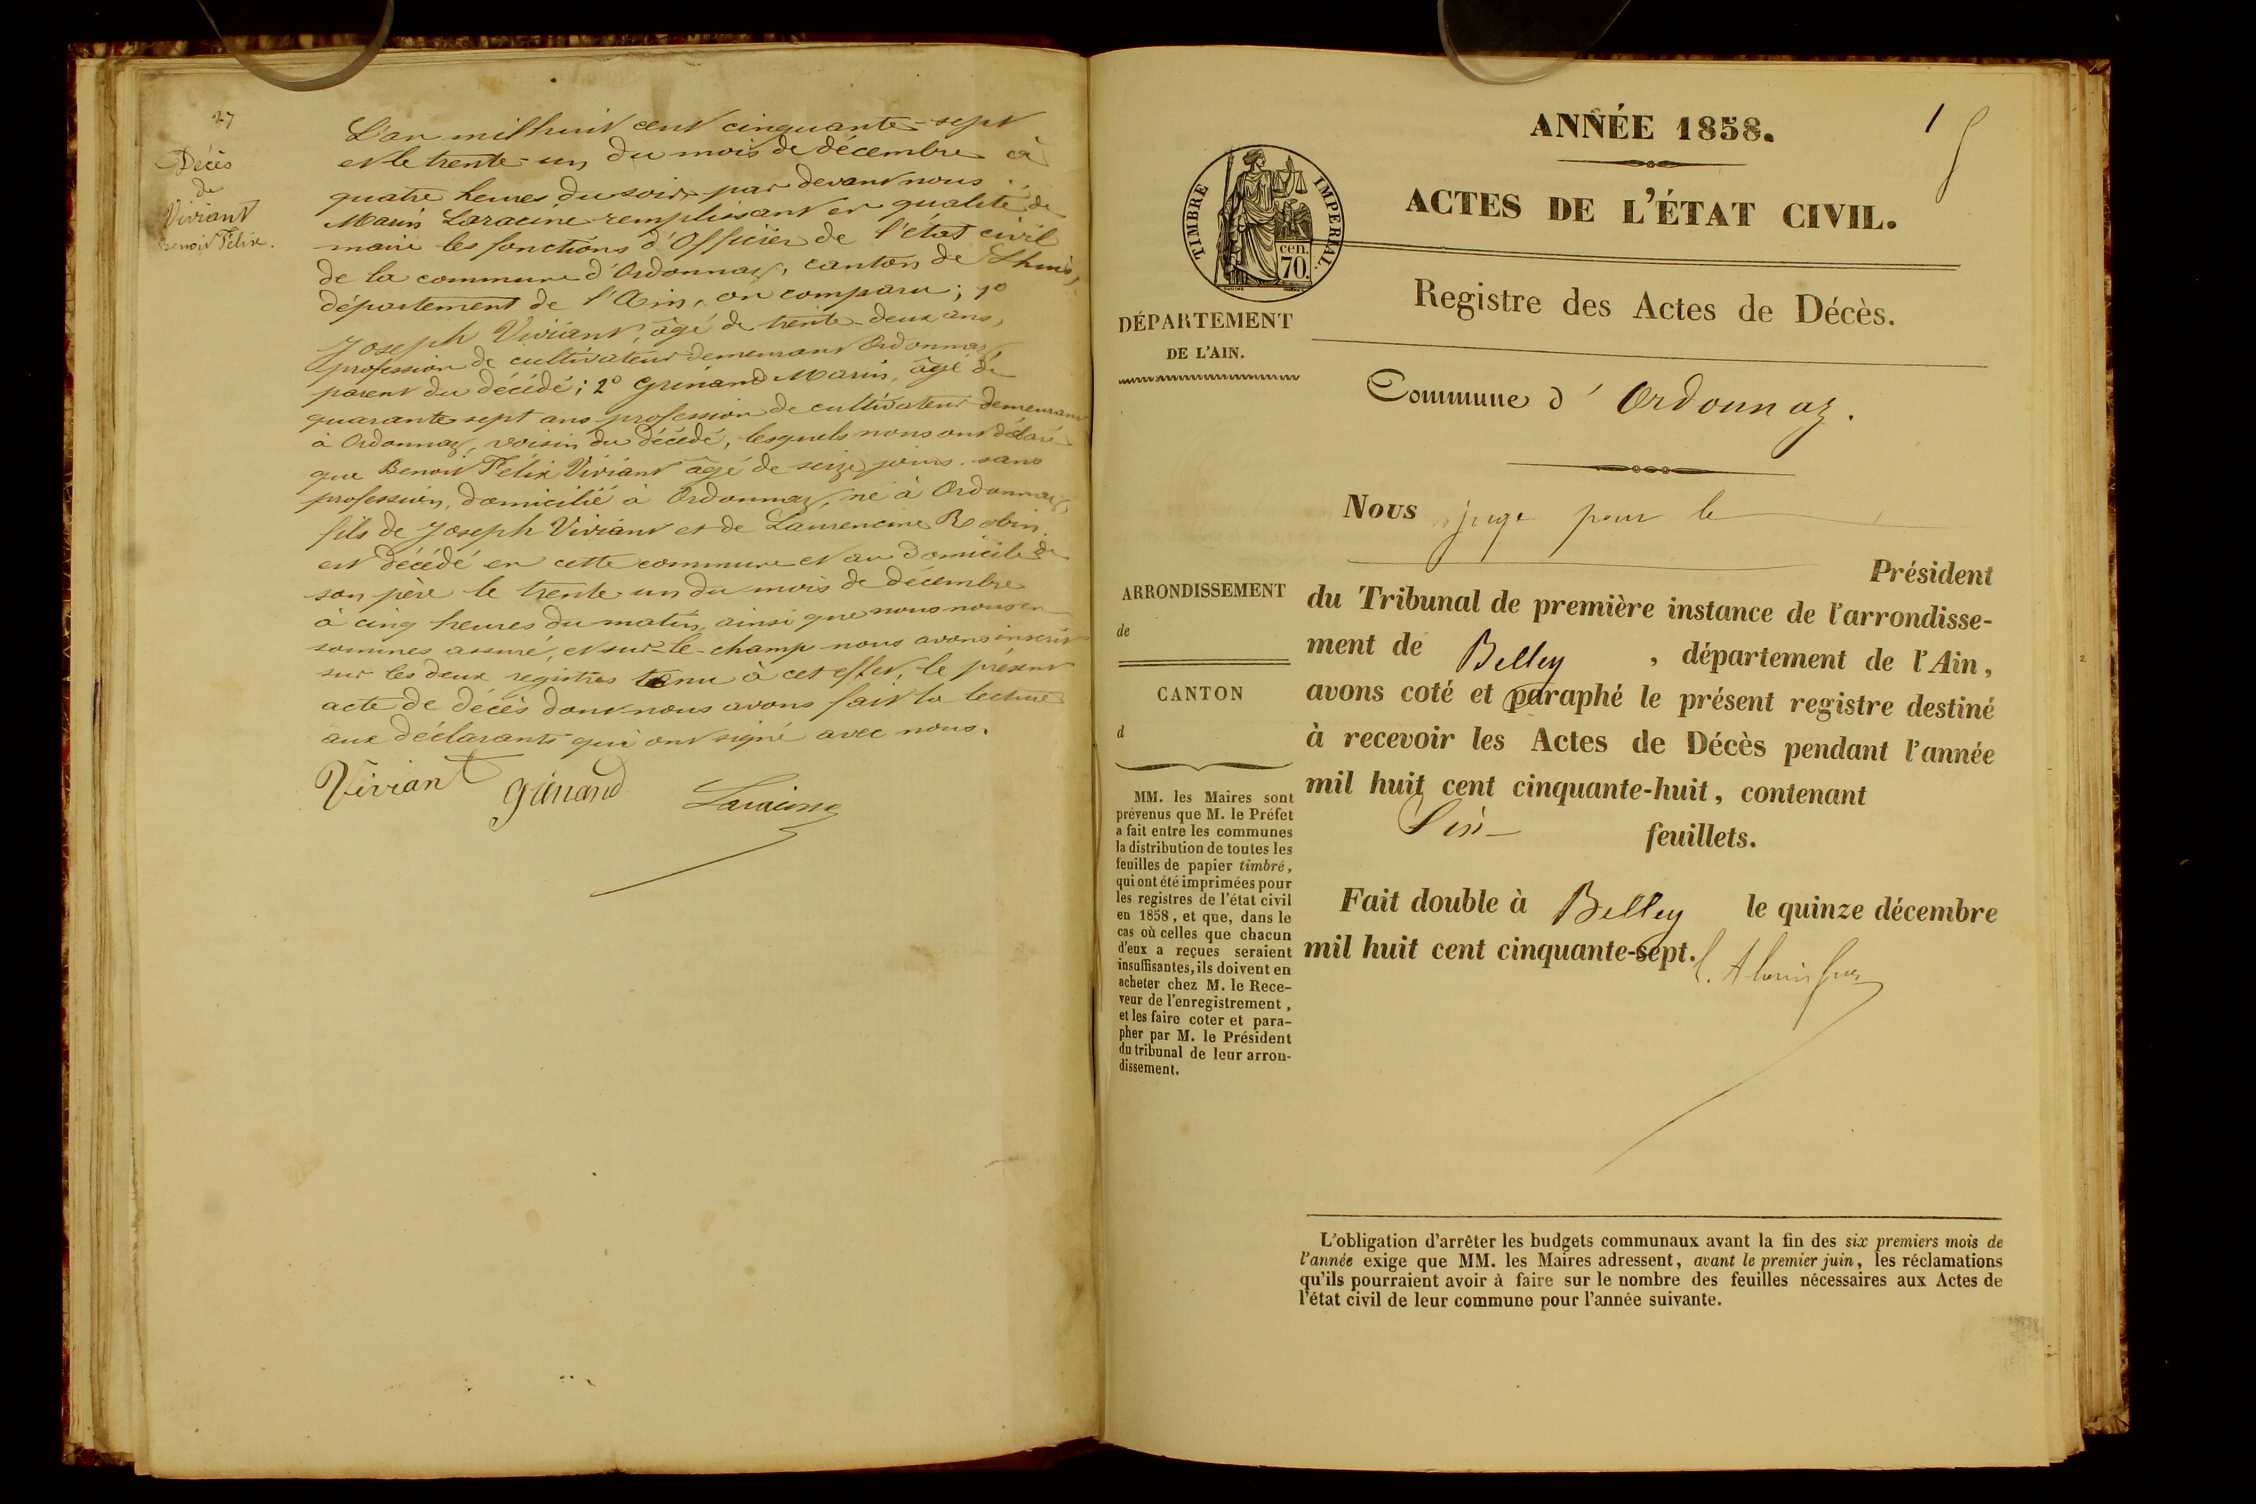 27
Décès
de
Viviant
Benoit Félix.
L'an mil huit cent cinquante-sept
et le trente-un du mois de décembre à
quatre heures du soir par devant nous
Marin Laracine remplissant en qualité de
maire les fonctions d'Officier de l'état civil
de la commune d'Ordonnaz, canton de Lhuis,
département de l'Ain, on comparu ; 1º
Joseph Viviant, âgé de trente-deux ans,
profession de cultivateur demeurant Ordonnaz
parent du décédé ; 2º Grinand Marin, âgé de
quarante sept ans profession de cultivateur demeurant
à Ordonnaz, voisin du décédé, lesquels nous ont déclaré
que Benoit Félix Viviant âgé de seize jours sans
profession, domicilié à Ordonnaz, né à Ordonnaz,
fils de Joseph Viviant et de Laurencine Robin
est décédé en cette commune et au domicile de
son père le trente un du mois de décembre
à cinq heures du matin, ainsi que nous nous en
sommes assuré, et sur-le-champ nous avons inscrit
sur les deux registres tenu à cet effet, le présent
acte de décès dont nous avons fait la lecture
aux déclarants qui ont signé avec nous.
Viviant Grinand Laracine
1
ANNÉE 1858.
ACTES DE L'ÉTAT CIVIL.
TIMBRE IMPERIAL.
cen.
70.
Registre des Actes de Décès.
DÉPARTEMENT
DE L'AIN.
Commune d'Ordonnaz.
Nous juge pour le
Président
ARRONDISSEMENT
de
CANTON
d
du Tribunal de première instance de l'arrondisse-
ment de Belley, département de l'Ain,
avons coté et paraphé le présent registre destiné
à recevoir les Actes de Décès pendant l'année
mil huit cent cinquante-huit, contenant
Six feuillets.
Fait double à Belley le quinze décembre
mil huit cent cinquante-sept.
MM. les Maires sont
prévenus que M. le Préfet
a fait entre les communes
la distribution de toutes les
feuilles de papier timbré,
qui ont été imprimées pour
les registres de l'état civil
en 1858, et que, dans le
cas où celles que chacun
d'eux a reçues seraient
insuffisantes, ils doivent en
acheter chez M. le Rece-
veur de l'enregistrement,
et les faire coter et para-
pher par M. le Président
du tribunal de leur arron-
dissement.
L'obligation d'arrêter les budgets communaux avant la fin des six premiers mois de
l'année exige que MM. les Maires adressent, avant le premier juin, les réclamations
qu'ils pourraient avoir à faire sur le nombre des feuilles nécessaires aux Actes de
l'état civil de leur commune pour l'année suivante.